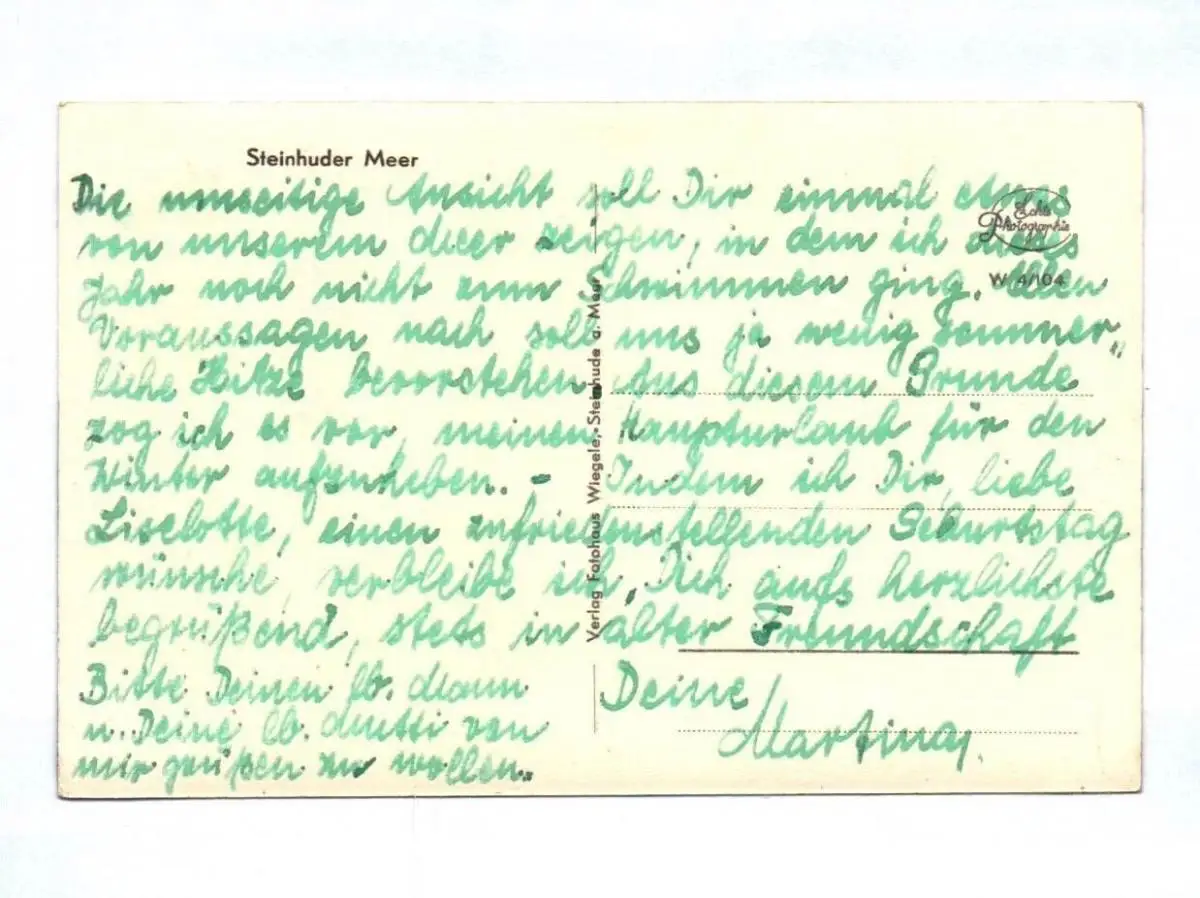 Steinhuder Meer
Die umseitige Ansicht soll Dir einmal etwas
von unserem Meer zeigen, in dem ich dieses
Jahr noch nicht zum Schwimmen ging. Allen
Voraussagen nach soll uns ja wenig sommer„
liche Hitze bevorstehen. Aus diesem Grunde
zog ich es vor, meinen Haupturlaub für den
Winter aufzuheben. – Indem ich Dir, liebe
Liselotte, einen zufriedenstellenden Geburtstag
wünsche, verbleibe ich, Dich aufs herzlichste
begrüßend, stets in alter Freundschaft
Deine
Martina.
Bitte Deinen lb. Mann
u. Deine lb. Mutti von
mir grüßen zu wollen.
Verlag Fotohaus Wiegele, Steinhude a. Meer
Echte
Photographie
W 4/104